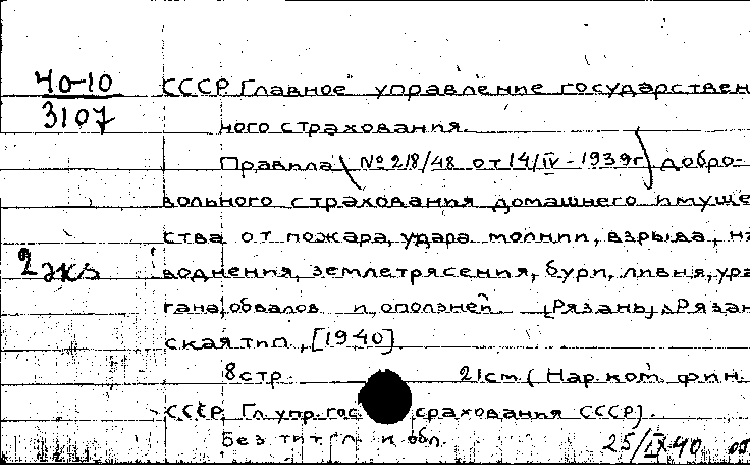 40-10
3107
СССР. Главное управление государствен
ного страхования.
Правила (№ 218/48 от 14/IV - 1939г) добро-
вольного страхования домашнего имуще
ства от пожара, удара молнии, взрыва, на
2 экз
воднения, землетрясения, бури, ливня, ура
гана, обвалов и оползней. [Рязань], Рязан
ская тип., [1940].
8 стр. 21 см (Нар. ком. фин.
СССР. Гл. упр. гос. срахования СССР).
Без тит. л. и обл.
25/IX 40 об